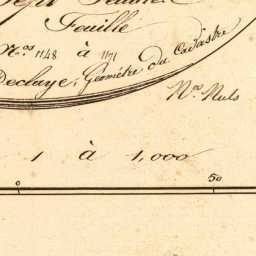 Feuille
Nos 1148 à 1171
Declaye, Géomètre du Cadastre
Nos Nuls
1 à 1,000
0 50